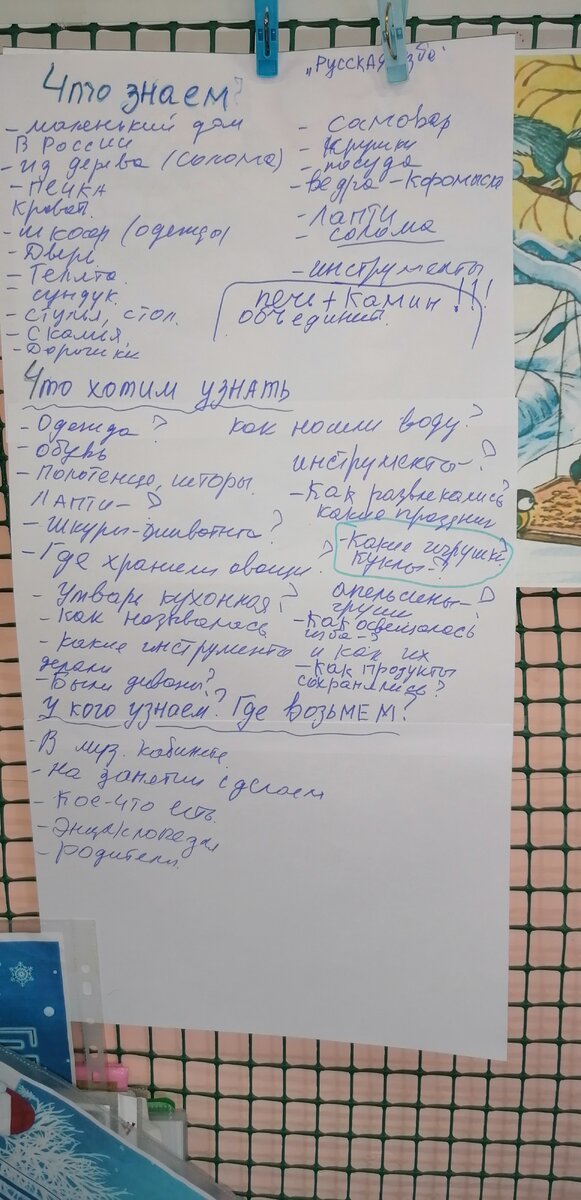 „Русская изба"
Что знаем?
- маленький дом
в России
- из дерева (солома)
- печка
кроват.
- шкоар (одежды)
- Дверь
- Теплята
= сундук.
- Стулья, стол.
- Скамья,
- Дорожки
- самовар
- кружки
- посуда
- ведра - коромысла
- Лапти
- солома
- инструменты
печь + камин !!!
объединит.
Что хотим узнать
- Одежда?
- обувь
- Полотенце, шторы.
Лапти - ?
- Шкуры - животного?
- Где хранили овощи?
- Утварь кухонная?
- как называлось
- какие инструменты
делали
- Были диваны?
как носили воду?
инструменты - ?
- Как развлекались?
какие праздник
- Какие игрушки?
куклы - ?
апельсины - ?
груши
- Как освещалось
изба - ?
и как их
- Как продукты
сохранялись?
У кого узнаем? Где возьмем?
- В муз. кабинете
- на занятии сделаем
- Кое-что есть
- Энциклопедии
- родители.